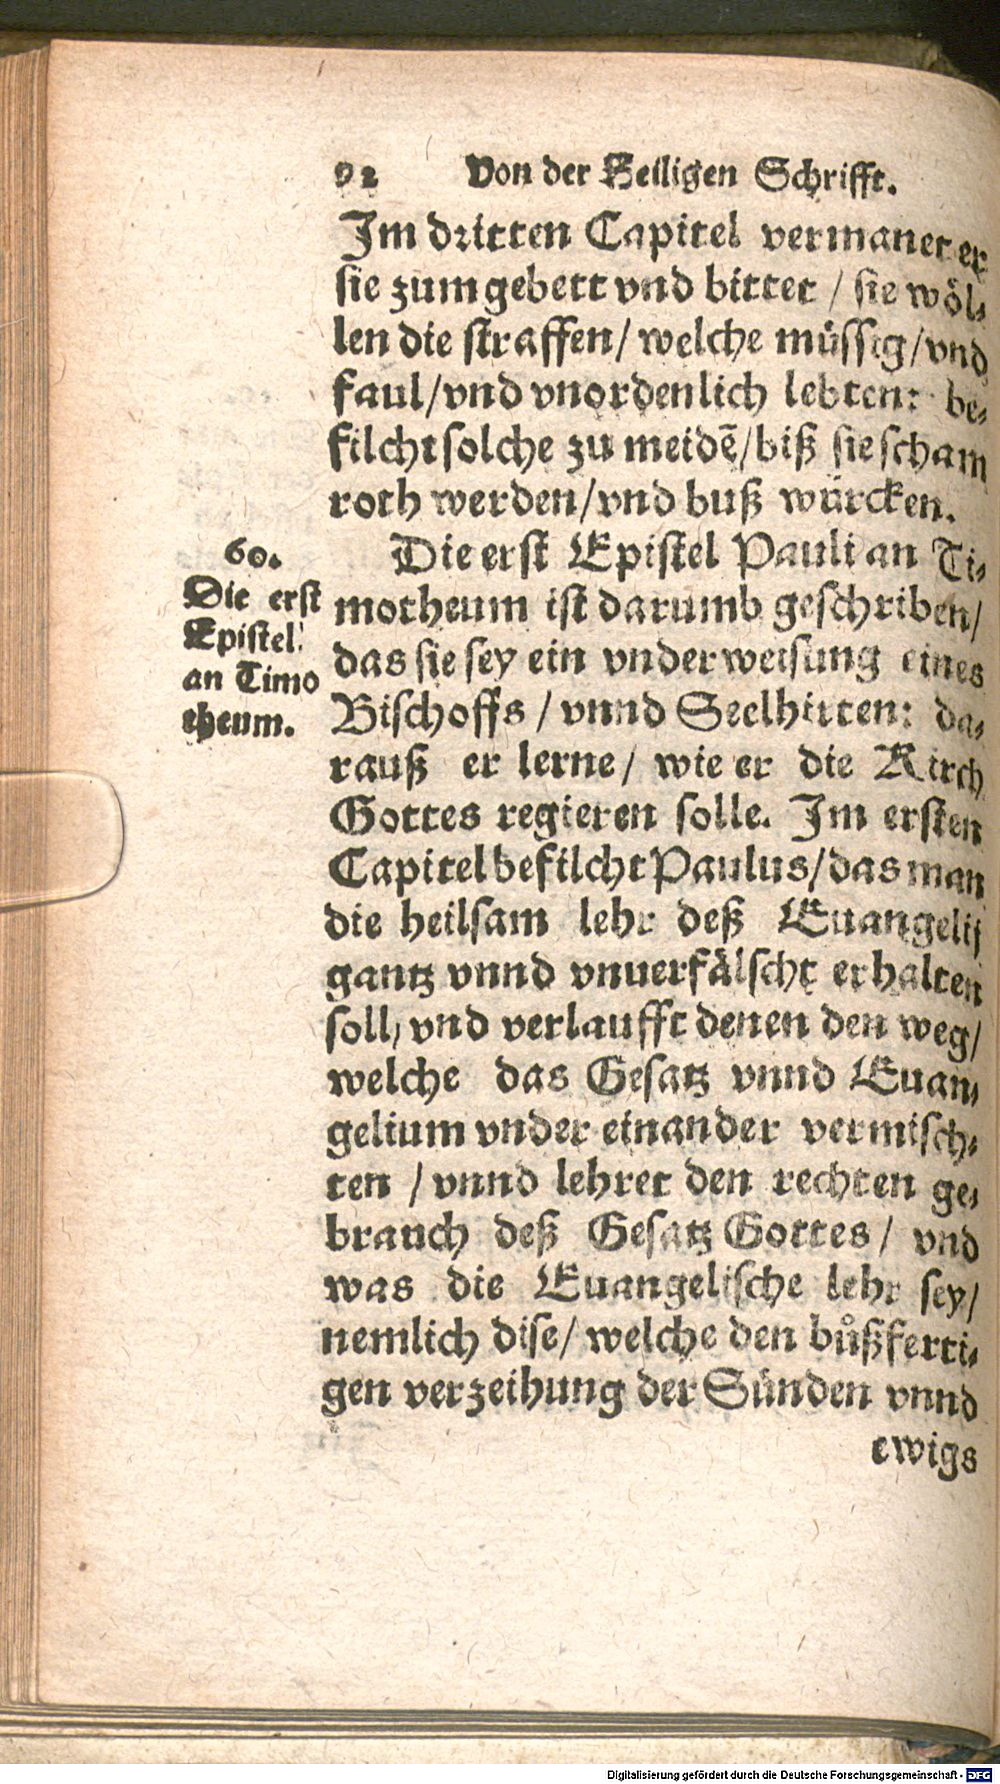 92 Von der Heiligen Schrifft.
Im dritten Capitel vermanet er
sie zum gebett vnd bittet / sie wöl-
len die straffen/ welche müssig/vnd
faul/vnd vnordenlich lebten: be-
filcht solche zu meidē/biß sie scham
roth werden/vnd buß würcken.
60.
Die erst
Epistel
an Timo
theum.
Die erst Epistel Pauli an Ti-
motheum ist darumb geschriben/
das sie sey ein vnderweisung eines
Bischoffs / vnnd Seelhirten: da-
rauß er lerne/ wie er die Kirch
Gottes regieren solle. Im ersten
Capitel befilcht Paulus/das man
die heilsam lehr deß Euangelij
gantz vnnd vnuerfälscht erhalten
soll, vnd verlaufft denen den weg/
welche das Gesatz vnnd Euan-
gelium vnder einander vermisch-
ten / vnnd lehret den rechten ge-
brauch deß Gesatz Gottes/ vnd
was die Euangelische lehr sey/
nemlich dise/ welche den bůßferti-
gen verzeihung der Sünden vnnd
ewigs
Digitalisierung gefördert durch die Deutsche Forschungsgemeinschaft - DFG